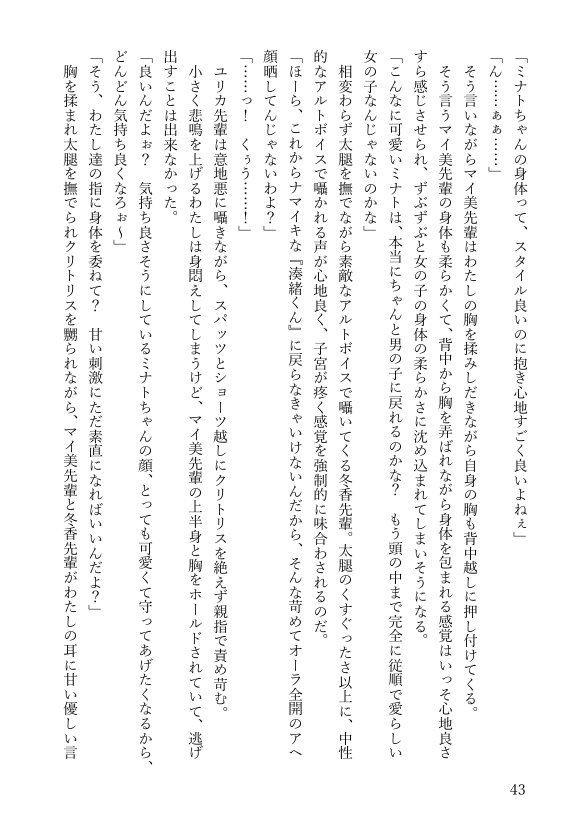 「ミナトちゃんの身体って、スタイル良いのに抱き心地すごく良いよねぇ」
「ん……ぁぁ……」
そう言いながらマイ美先輩はわたしの胸を揉みしだきながら自身の胸も背中越しに押し付けてくる。
そう言うマイ美先輩の身体も柔らかくて、背中から胸を弄ばれながら身体を包まれる感覚はいっそ心地良さ
すら感じさせられ、ずぶずぶと女の子の身体の柔らかさに沈め込まれてしまいそうになる。
「こんなに可愛いミナトは、本当にちゃんと男の子に戻れるのかな？　もう頭の中まで完全に従順で愛らしい
女の子なんじゃないのかな」
相変わらず太腿を撫でながら素敵なアルトボイスで囁いてくる冬香先輩。太腿のくすぐったさ以上に、中性
的なアルトボイスで囁かれる声が心地良く、子宮が疼く感覚を強制的に味合わされるのだ。
「ほーら、これからナマイキな『湊緒くん』に戻らなきゃいけないんだから、そんな苛めてオーラ全開のアヘ
顔晒してんじゃないわよ？」
「……っ！　くぅう……！」
ユリカ先輩は意地悪に囁きながら、スパッツとショーツ越しにクリトリスを絶えず親指で責め苛む。
小さく悲鳴を上げるわたしは身悶えしてしまうけど、マイ美先輩の上半身と胸をホールドされていて、逃げ
出すことは出来なかった。
「良いんだよぉ？　気持ち良さそうにしているミナトちゃんの顔、とっても可愛くて守ってあげたくなるから、
どんどん気持ち良くなろぉ～」
「そう、わたし達の指に身体を委ねて？　甘い刺激にただ素直になればいいんだよ？」
胸を揉まれ太腿を撫でられクリトリスを嬲られながら、マイ美先輩と冬香先輩がわたしの耳に甘い優しい言
43